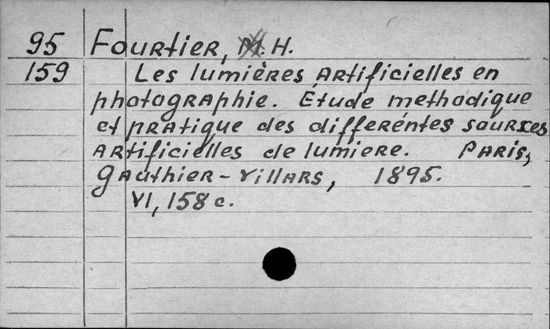 95 Fourtier, H.
159 Les lumières artificielles en
photographie. Étude methodique
et pratique des differéntes sources
artificielles de lumiere. Paris,
Gauthier-Villars, 1895.
VI, 158 c.